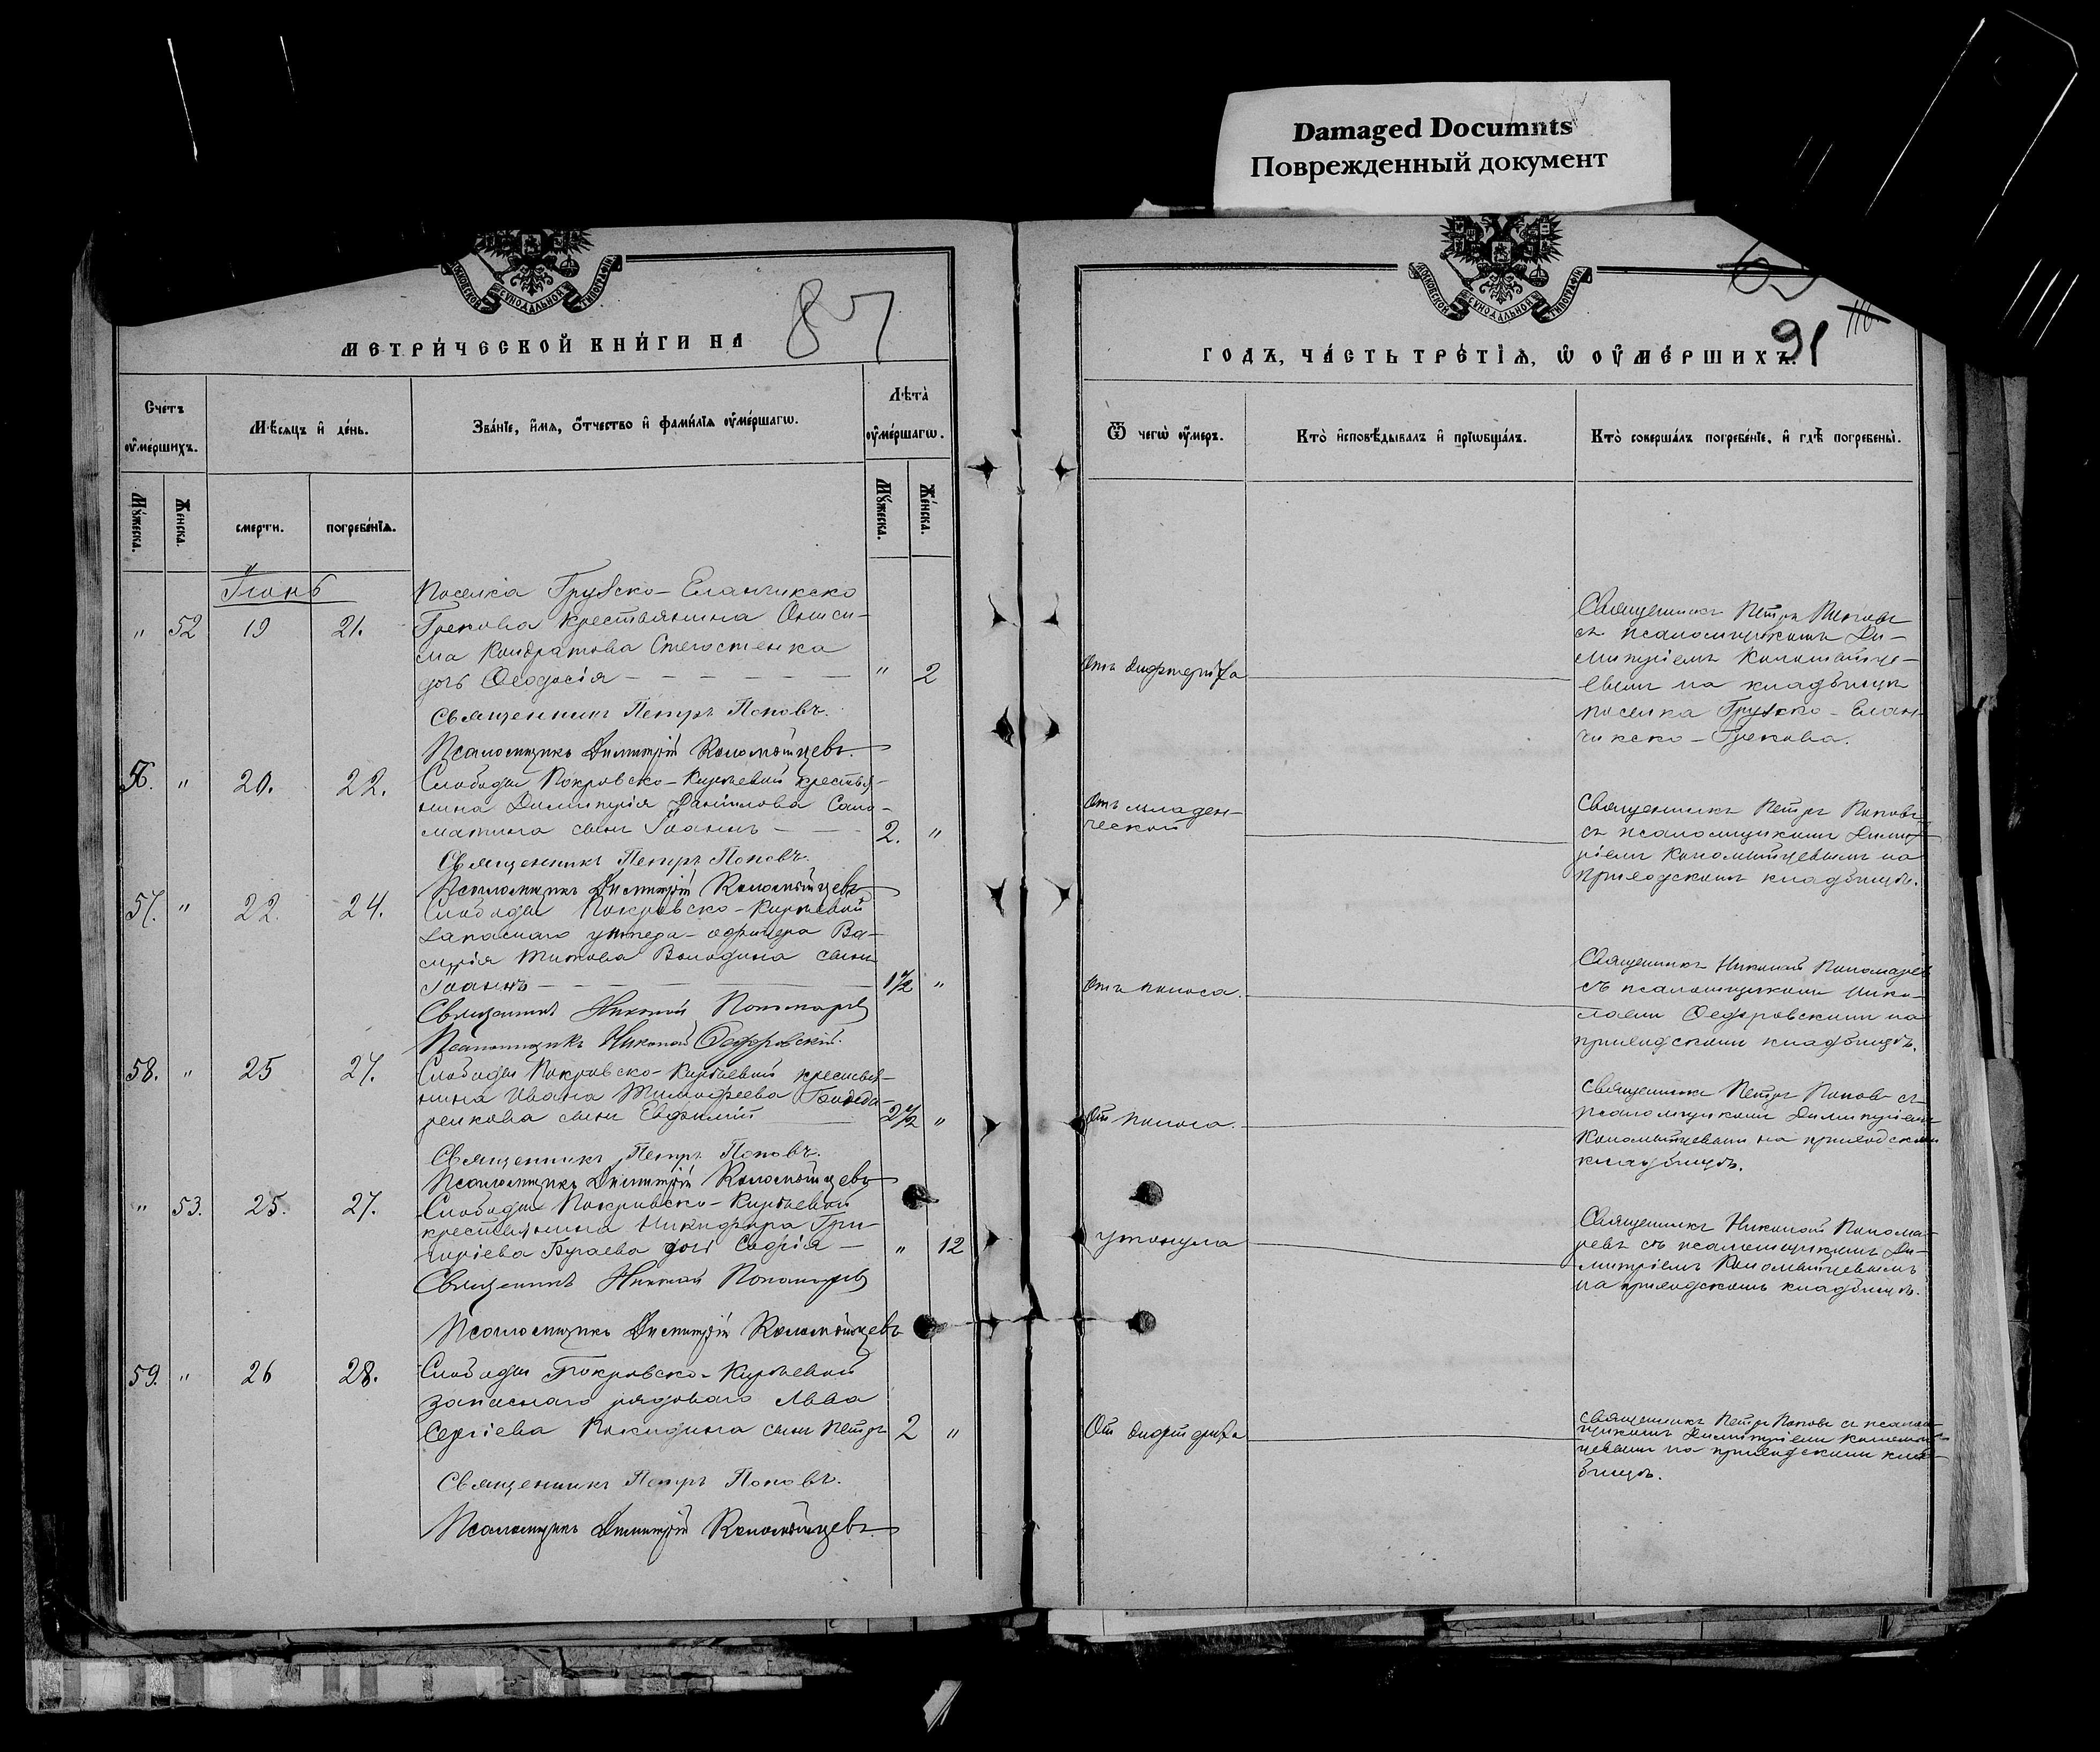 Damaged Documnts
Поврежденный документ
МОСКОВСКОЙ СѴНОДАЛЬНОЙ ТИПОГРАФІИ
МЕТРИ́ЧЕСКОЙ КНИ́ГИ НА
87
Сче́тъ оу҆ме́ршихъ.
Мѣ́сяцъ и҆ де́нь.
Зва́нїе, и҆́мѧ, ѻ҆́тчество и҆ фами́лїѧ оу҆ме́ршагѡ.
Лѣ́та оу҆ме́ршагѡ.
Мꙋ́жеска.
Же́нска.
сме́рти.
погребе́нїѧ.
Мꙋ́жеска.
Же́нска.
Іюнь
Поселка Грузско-Еланчикско
" 52 19 21. Грекова крестьянина Ониси-
ма Кондратова Стегостенка
дочь Ѳеодосія " 2
Священникъ Петръ Поповъ.
Псаломщикъ Димитрій Коломыйцевъ
56. " 20. 22. Слободы Покровско-Киреевой крестья-
нина Димитрія Данилова Соло-
матина сынъ Іоаннъ 2. "
Священникъ Петръ Поповъ.
Псаломщикъ Димитрій Коломыйцевъ
57. " 22. 24. Слободы Покровско-Киреевой
запаснаго унтеръ-офицера Ва-
силія Титова Володина сынъ
Іоаннъ 1½ "
Священникъ Николай Пономаревъ
Псаломщикъ Николай Ѳедоровскій.
58. " 25 27. Слободы Покровско-Киреевой крестья-
нина Ивана Тимофеева
сынъ Евфимій 2½ "
Священникъ Петръ Поповъ.
Псаломщикъ Димитрій Коломыйцевъ
" 53. 25. 27. Слободы Покровско-Киреевой
крестьянина Никифора Гри-
горіева Бугаева дочь Софія " 12
Священникъ Николай Пономаревъ
Псаломщикъ Димитрій Коломыйцевъ
59. " 26 28. Слободы Покровско-Киреевой
запаснаго рядоваго Льва
Сергіева сынъ Петръ 2 "
Священникъ Петръ Поповъ.
Псаломщикъ Димитрій Коломыйцевъ
МОСКОВСКОЙ СѴНОДАЛЬНОЙ ТИПОГРАФІИ
91
ГО́ДЪ, ЧА́СТЬ ТРЕ́ТЇѦ, Ѡ҆ ОУ҆МЕ́РШИХЪ.
Ѿ чегѡ̀ оу҆́меръ.
Кто̀ и҆сповѣ́дывалъ и҆ прїѡбща́лъ.
Кто̀ соверша́лъ погребе́нїе, и҆ гдѣ̀ погребены̀.
Отъ дифтерита
Священникъ Петръ Поповъ
съ псаломщикомъ Ди-
митріемъ Коломыйце-
вымъ на кладбищѣ
поселка Грузско-Елан-
чикско-Грекова.
Отъ младен-
ческой
Священникъ Петръ Поповъ
съ псаломщикомъ Димит-
ріемъ Коломыйцевымъ на
приходскомъ кладбищѣ.
Отъ поноса.
Священникъ Николай Пономаревъ
съ псаломщикомъ Нико-
лаемъ Ѳедоровскимъ на
приходскомъ кладбищѣ.
Отъ поноса.
Священникъ Петръ Поповъ съ
псаломщикомъ Димитріемъ
Коломыйцевымъ на приходскомъ
кладбищѣ.
утонула
Священникъ Николай Понома-
ревъ съ псаломщикомъ Ди-
митріемъ Коломыйцевымъ
на приходскомъ кладбищѣ.
Отъ дифтерита
Священникъ Петръ Поповъ съ псалом-
щикомъ Димитріемъ Коломый-
цевымъ на приходскомъ клад-
бищѣ.